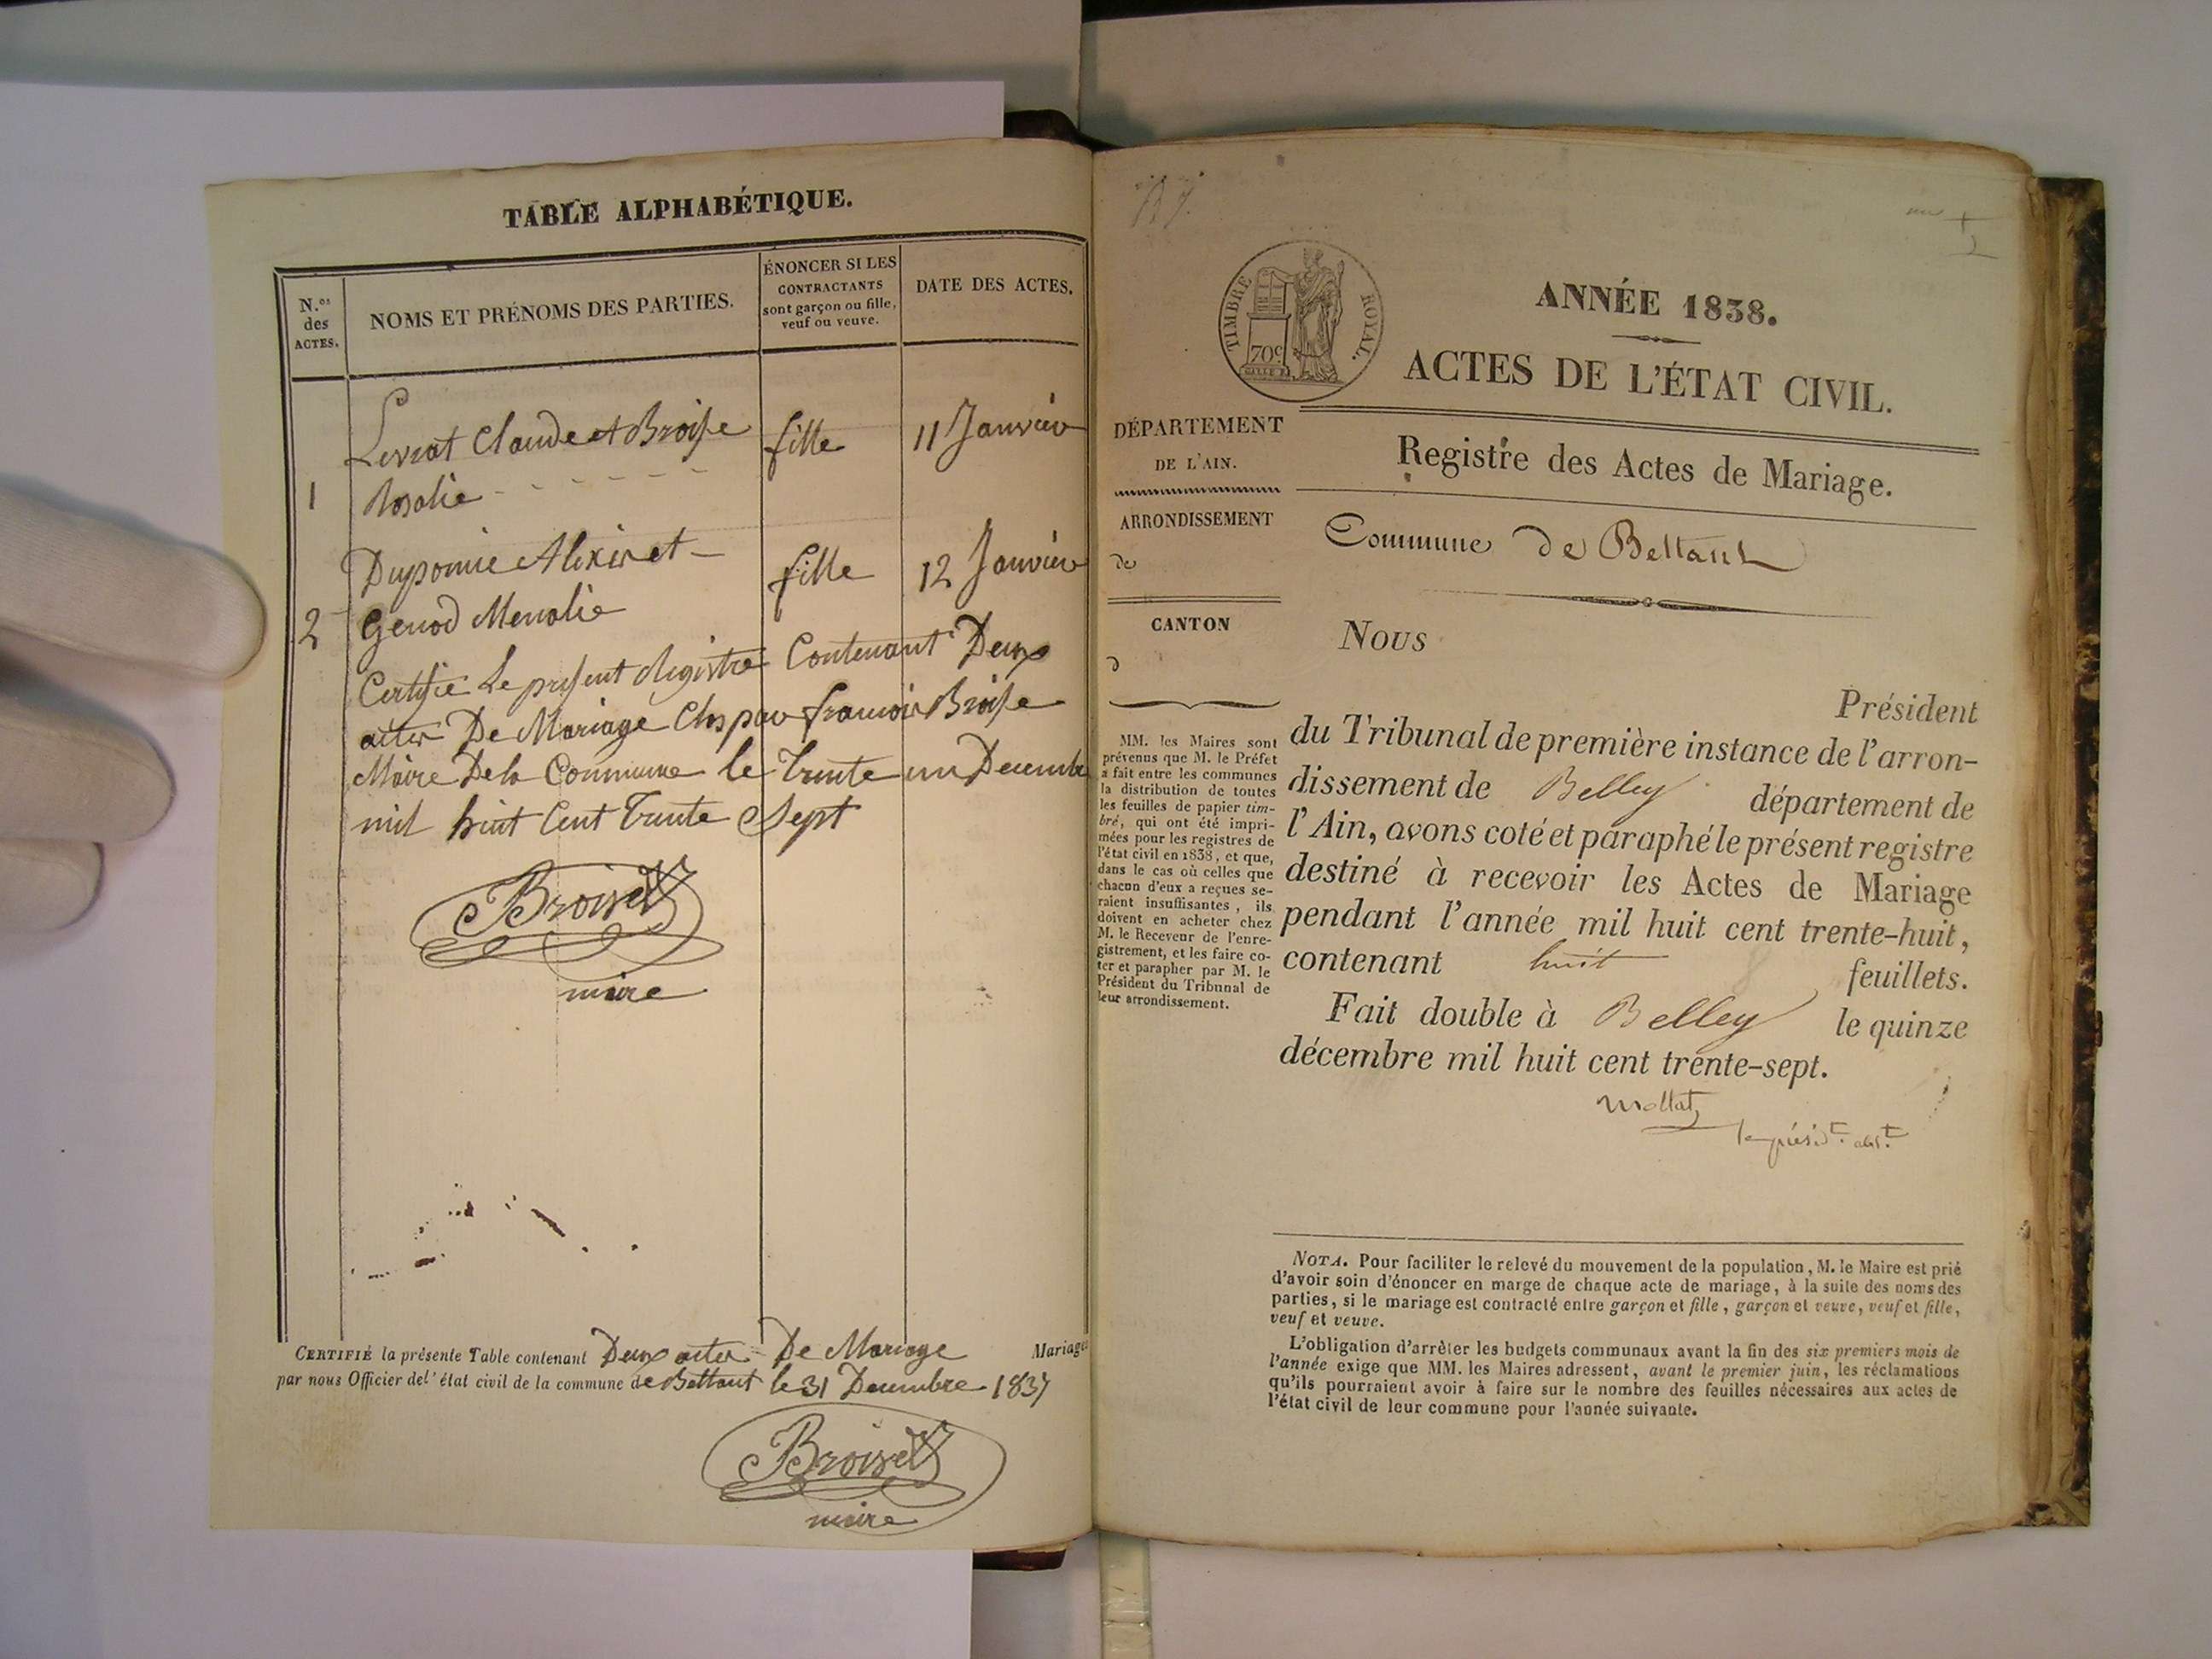 TABLE ALPHABÉTIQUE.
N.os des ACTES.
NOMS ET PRÉNOMS DES PARTIES.
ÉNONCER SI LES
CONTRACTANTS
sont garçon ou fille,
veuf ou veuve.
DATE DES ACTES.
Levrat Claude et Broise fille 11 Janvier
1 Rosalie
Duponie Alexis et fille 12 Janvier
2 Genod Menalie
Certifie Le present Registre Contenant Deux
actes De Mariage Clos par francois Broise
Maire De la Commune le trente un Decembre
mil huit Cent trente Sept
Broiset
maire
CERTIFIÉ la présente Table contenant Deux actes De Mariage Mariages
par nous Officier de l'état civil de la commune de Bettant le 31 Decembre 1837
Broiset
maire
TIMBRE ROYAL.
70c
ANNÉE 1838.
ACTES DE L'ÉTAT CIVIL.
DÉPARTEMENT
DE L'AIN.
ARRONDISSEMENT
de
CANTON
d
MM. les Maires sont
prévenus que M. le Préfet
a fait entre les communes
la distribution de toutes
les feuilles de papier tim-
bré, qui ont été impri-
mées pour les registres de
l'état civil en 1838, et que,
dans le cas où celles que
chacun d'eux a reçues se-
raient insuffisantes, ils
doivent en acheter chez
M. le Receveur de l'enre-
gistrement, et les faire co-
ter et parapher par M. le
Président du Tribunal de
leur arrondissement.
Registre des Actes de Mariage.
Commune de Bettant
Nous
Président
du Tribunal de première instance de l'arron-
dissement de Belley département de
l'Ain, avons coté et paraphé le présent registre
destiné à recevoir les Actes de Mariage
pendant l'année mil huit cent trente-huit,
contenant huit 8 feuillets.
Fait double à Belley le quinze
décembre mil huit cent trente-sept.
Mollat
le présidt. abst.
NOTA. Pour faciliter le relevé du mouvement de la population, M. le Maire est prié
d'avoir soin d'énoncer en marge de chaque acte de mariage, à la suite des noms des
parties, si le mariage est contracté entre garçon et fille, garçon et veuve, veuf et fille,
veuf et veuve.
L'obligation d'arrêter les budgets communaux avant la fin des six premiers mois de
l'année exige que MM. les Maires adressent, avant le premier juin, les réclamations
qu'ils pourraient avoir à faire sur le nombre des feuilles nécessaires aux actes de
l'état civil de leur commune pour l'année suivante.